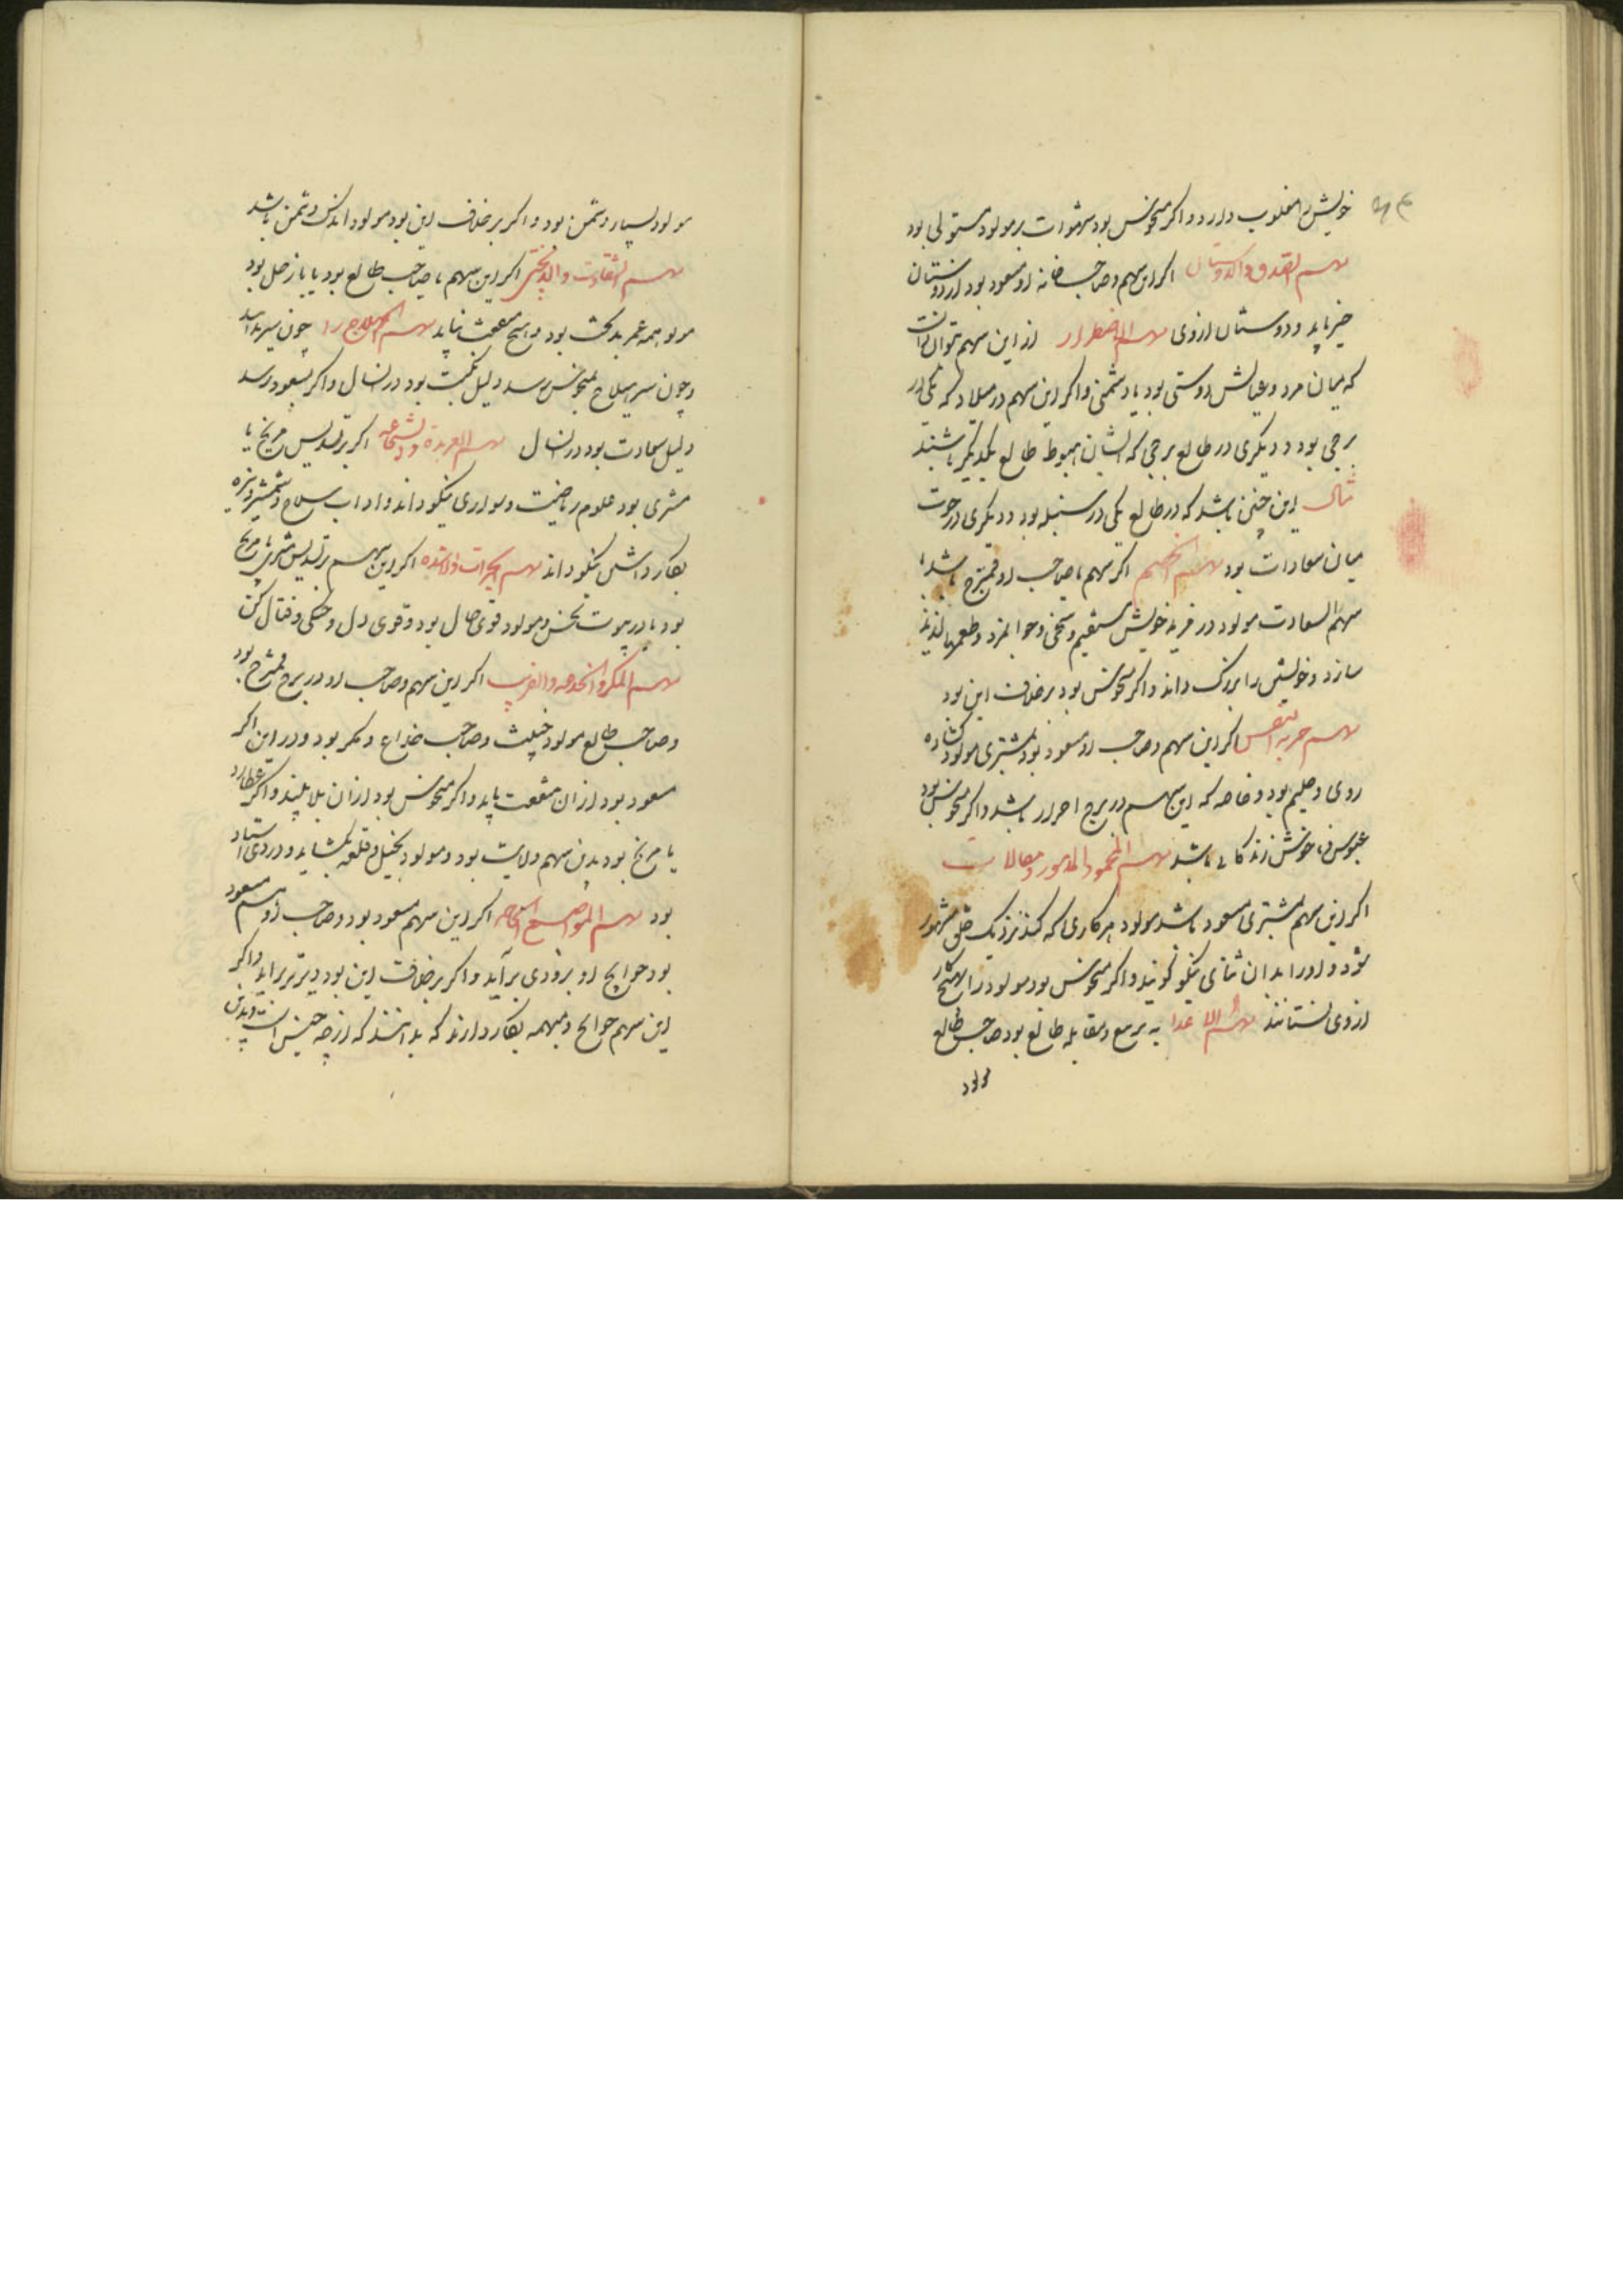 خویش را مغلوب دارد و اکر منحوس بود شهوات بر مولود مستولی بود
سهم الصدق والدوستان اکر این سهم و صاحب خانه او مسعود بود از دوستان
خیر یابد و دوستان از وی سهم الاضطرار از این سهم توان دانست
که میان مرد و عیالش دوستی بود یا دشمنی و اکر این سهم در میلاد که یکی در
برجی بود و دیکری در طالع برجی که ایشان هبوط طالع یکدیکر باشند
مثال این چنین باشد که در طالع یکی در سنبله بود و دیکری در حوت
میان معادات بود سهم اکر سهم با صاحب او ممتزج باشد با
سهم السعادت مولود در خویش مستقیم و سخی و جوانمرد و طعمها لذیذ
سازد و خویش را بزرک داند و اکر منحوس بود برخلاف این بود
سهم حریة النفس اکر این سهم و صاحب او مسعود بود بمشتری مولود کشاده
روی و حلیم بود و خاصه که این سهم در برج احرار باشد و اکر منحوس بود
عبوس و ناخوش زندکانی باشد سهم المحمود
اکر این سهم بمشتری مسعود باشد مولود هر کاری که کند نزدیک خلق مشهور
شود و او را بدان ثنای نیکو کویند و اکر منحوس بود مولود را هیچ کار
از وی نستانند سهم الاعدا به تربیع و مقابله طالع بود صاحب طالع
مولود
مولود بسیار دشمن بود و اکر برخلاف این بود مولود اندک دشمن باشد
سهم الشقاوت والبدبختی اکر این سهم با صاحب طالع بود یا با زحل بود
مولود همه عمر بدبخت بود و هیچ منفعت نیابد سهم الهیلاج را چون سیر
و چون سیر هیلاج بمنحوس رسد دلیل نکبت بود در انسال و اکر بسعود رسد
دلیل سعادت بود در انسال سهم العربده و الشجاعه اکر بر تسدیس مریخ یا
مشتری بود علوم ریاضیت و سواری نیکو داند و اداب سلاح و شمشیر و نیزه
بکار داشتن نیکو داند سهم الجرات والشده اکر این سهم بر تسدیس مشتری یا مریخ
بود یا در بیوت نحس و مولود قوی حال بود و قوی دل و جنکی و قتال کن
سهم المکر والخدعه والفریب اکر این سهم و صاحب او در برج ممتزج بود
و صاحب طالع مولود خبیث و صاحب خداع و مکر بود و در این اکر
مسعود بود از ان منفعت یابد و اکر منحوس بود از ان بلا بیند و اکر عطارد
یا مریخ بود بدین سهم ولایت بود و مولود بخیل و قلعه بکشاید و دزدی استاد
بود سهم المواضع الحاجه اکر این سهم مسعود بود و صاحب او هم مسعود
بود حوایج او بزودی برآید و اکر برخلاف این بود دیرتر براید و اکر
این سهم حوایج و مبهمه بکار دارند که بدانند که از چه جنس است و بدین